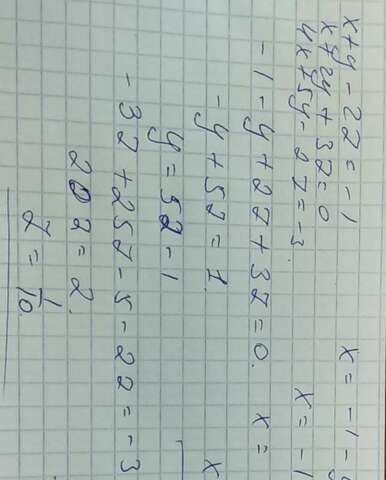 x+y-2z=-1 x=-1-y
x+2y+3z=0
4x+5y-2z=-3. x=-1
-1-y+2z+3z=0. x=
-y+5z=1. x
y=5z-1
-3z+25z-5-2z=-3
20z=2.
z=1/10